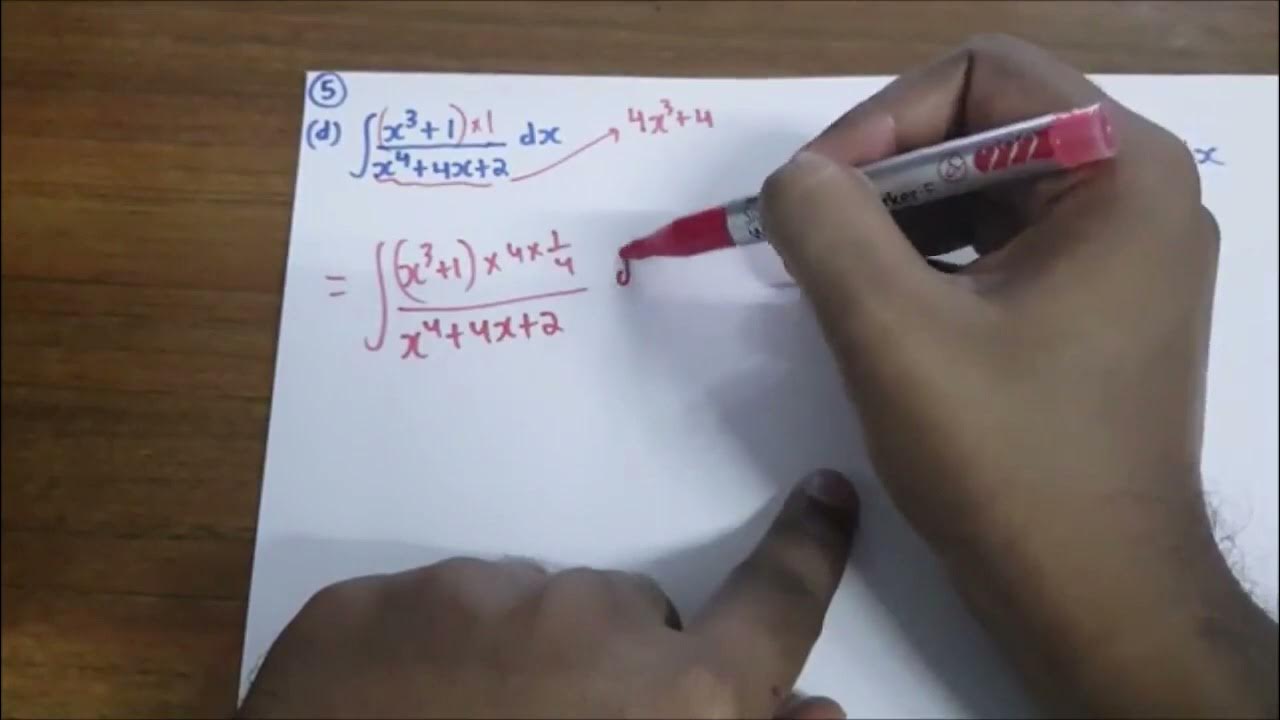 ⑤
(d) ∫ (x³+1)×1 / x⁴+4x+2 dx → 4x³+4
x
= ∫ (x³+1)×4×1/4 / x⁴+4x+2